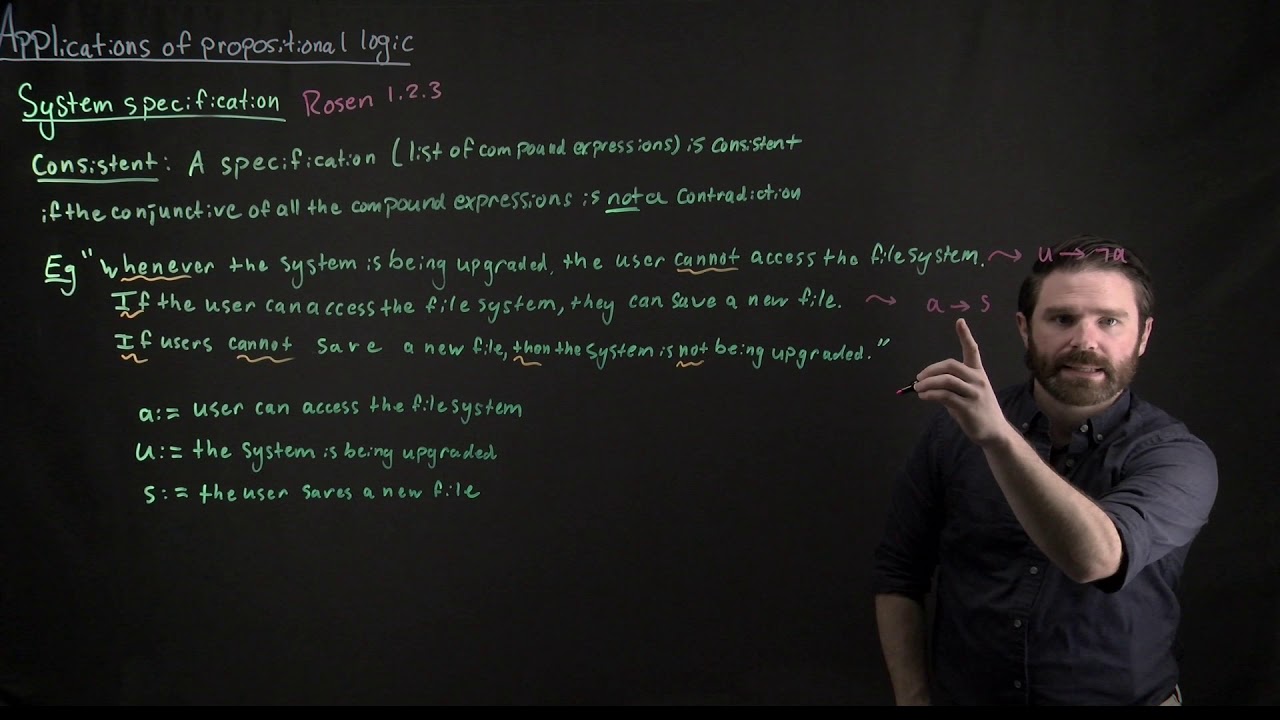 Applications of propositional logic
System specification Rosen 1.2.3
Consistent: A specification (list of compound expressions) is consistent
if the conjunctive of all the compound expressions is not a contradiction
Eg "Whenever the system is being upgraded, the user cannot access the file system. ⤳ u → ¬a
If the user can access the file system, they can save a new file. ⤳ a → s
If users cannot save a new file, then the system is not being upgraded."
a := user can access the file system
u := the system is being upgraded
s := the user saves a new file